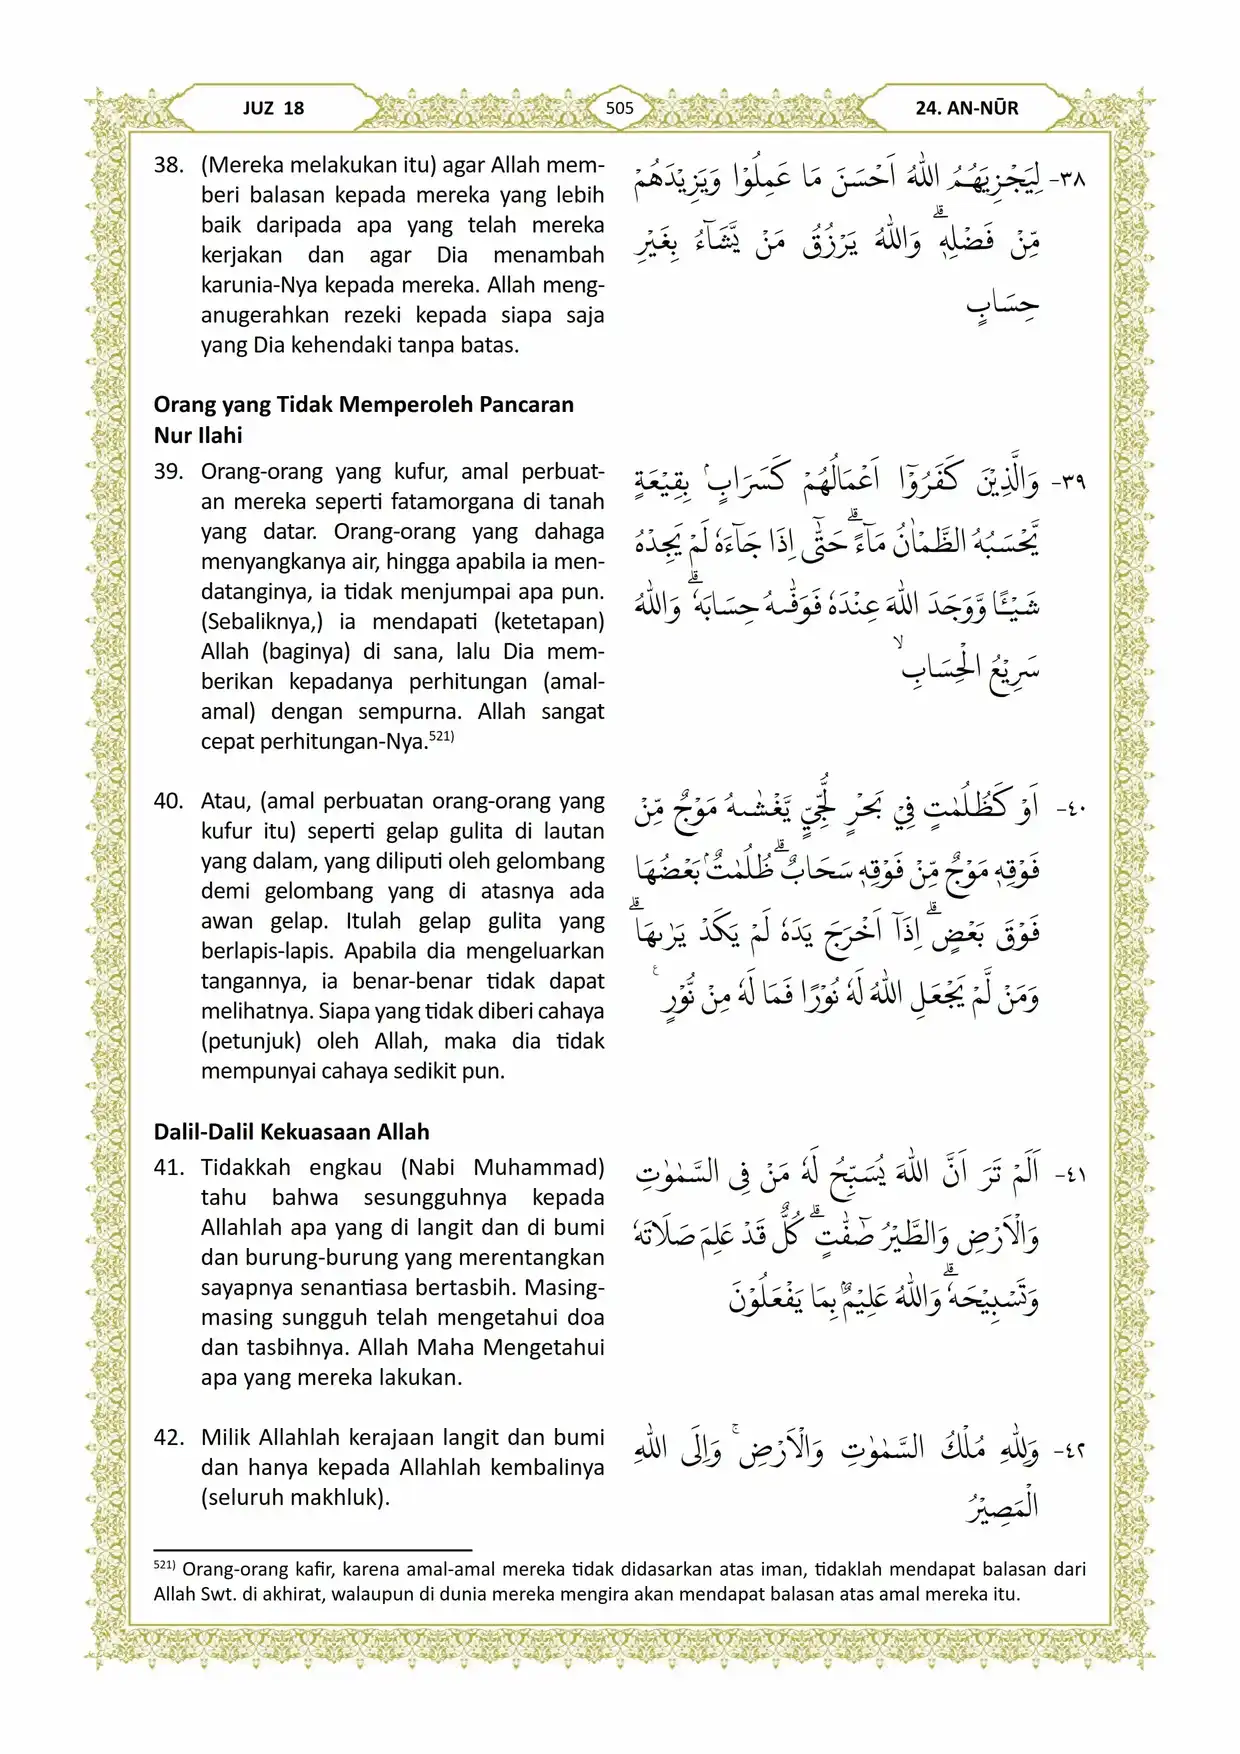 JUZ 18
505
24. AN-NŪR
38. (Mereka melakukan itu) agar Allah mem-
beri balasan kepada mereka yang lebih
baik daripada apa yang telah mereka
kerjakan dan agar Dia menambah
karunia-Nya kepada mereka. Allah meng-
anugerahkan rezeki kepada siapa saja
yang Dia kehendaki tanpa batas.
٣٨- لِيَجْزِيَهُمُ اللّٰهُ اَحْسَنَ مَا عَمِلُوْا وَيَزِيْدَهُمْ
مِّنْ فَضْلِهٖۗ وَاللّٰهُ يَرْزُقُ مَنْ يَّشَاۤءُ بِغَيْرِ
حِسَابٍ
Orang yang Tidak Memperoleh Pancaran
Nur Ilahi
39. Orang-orang yang kufur, amal perbuat-
an mereka seperti fatamorgana di tanah
yang datar. Orang-orang yang dahaga
menyangkanya air, hingga apabila ia men-
datanginya, ia tidak menjumpai apa pun.
(Sebaliknya,) ia mendapati (ketetapan)
Allah (baginya) di sana, lalu Dia mem-
berikan kepadanya perhitungan (amal-
amal) dengan sempurna. Allah sangat
cepat perhitungan-Nya.521)
٣٩- وَالَّذِيْنَ كَفَرُوْٓا اَعْمَالُهُمْ كَسَرَابٍۢ بِقِيْعَةٍ
يَّحْسَبُهُ الظَّمْاٰنُ مَاۤءًۗ حَتّٰٓى اِذَا جَاۤءَهٗ لَمْ يَجِدْهُ
شَيْـًٔا وَّوَجَدَ اللّٰهَ عِنْدَهٗ فَوَفّٰىهُ حِسَابَهٗۗ وَاللّٰهُ
سَرِيْعُ الْحِسَابِۙ
40. Atau, (amal perbuatan orang-orang yang
kufur itu) seperti gelap gulita di lautan
yang dalam, yang diliputi oleh gelombang
demi gelombang yang di atasnya ada
awan gelap. Itulah gelap gulita yang
berlapis-lapis. Apabila dia mengeluarkan
tangannya, ia benar-benar tidak dapat
melihatnya. Siapa yang tidak diberi cahaya
(petunjuk) oleh Allah, maka dia tidak
mempunyai cahaya sedikit pun.
٤٠- اَوْ كَظُلُمٰتٍ فِيْ بَحْرٍ لُّجِّيٍّ يَّغْشٰىهُ مَوْجٌ مِّنْ
فَوْقِهٖ مَوْجٌ مِّنْ فَوْقِهٖ سَحَابٌۗ ظُلُمٰتٌۢ بَعْضُهَا
فَوْقَ بَعْضٍۗ اِذَآ اَخْرَجَ يَدَهٗ لَمْ يَكَدْ يَرٰىهَاۗ
وَمَنْ لَّمْ يَجْعَلِ اللّٰهُ لَهٗ نُوْرًا فَمَا لَهٗ مِنْ نُّوْرٍ ࣖ
Dalil-Dalil Kekuasaan Allah
41. Tidakkah engkau (Nabi Muhammad)
tahu bahwa sesungguhnya kepada
Allahlah apa yang di langit dan di bumi
dan burung-burung yang merentangkan
sayapnya senantiasa bertasbih. Masing-
masing sungguh telah mengetahui doa
dan tasbihnya. Allah Maha Mengetahui
apa yang mereka lakukan.
٤١- اَلَمْ تَرَ اَنَّ اللّٰهَ يُسَبِّحُ لَهٗ مَنْ فِى السَّمٰوٰتِ
وَالْاَرْضِ وَالطَّيْرُ صٰۤفّٰتٍۗ كُلٌّ قَدْ عَلِمَ صَلَاتَهٗ
وَتَسْبِيْحَهٗۗ وَاللّٰهُ عَلِيْمٌۢ بِمَا يَفْعَلُوْنَ
42. Milik Allahlah kerajaan langit dan bumi
dan hanya kepada Allahlah kembalinya
(seluruh makhluk).
٤٢- وَلِلّٰهِ مُلْكُ السَّمٰوٰتِ وَالْاَرْضِۚ وَاِلَى اللّٰهِ
الْمَصِيْرُ
521) Orang-orang kafir, karena amal-amal mereka tidak didasarkan atas iman, tidaklah mendapat balasan dari
Allah Swt. di akhirat, walaupun di dunia mereka mengira akan mendapat balasan atas amal mereka itu.